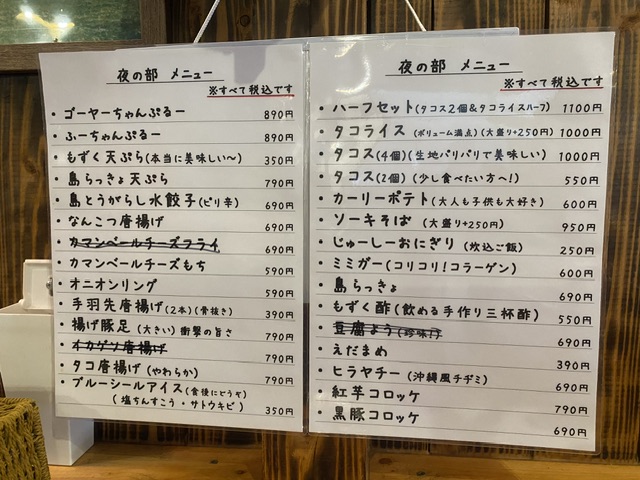 夜の部 メニュー
※すべて税込です
・ゴーヤーちゃんぷるー 890円
・ふーちゃんぷるー 890円
・もずく天ぷら(本当に美味しい〜) 350円
・島らっきょ天ぷら 790円
・島とうがらし水餃子(ピリ辛) 690円
・なんこつ唐揚げ 690円
・カマンベールチーズフライ 690円
・カマンベールチーズもち 590円
・オニオンリング 590円
・手羽先唐揚げ(2本)(骨抜き) 390円
・揚げ豚足(大きい)衝撃の旨さ 790円
・イカゲソ唐揚げ 790円
・タコ唐揚げ(やわらか) 790円
・ブルーシールアイス(食後にどうぞ)
(塩ちんすこう・サトウキビ) 350円
夜の部 メニュー
※すべて税込です
・ハーフセット(タコス2個&タコライスハーフ) 1100円
・タコライス(ボリューム満点)(大盛り+250円) 1000円
・タコス(4個)(生地パリパリで美味しい) 1000円
・タコス(2個)(少し食べたい方へ!) 550円
・カーリーポテト(大人も子供も大好き) 600円
・ソーキそば(大盛り+250円) 950円
・じゅーしーおにぎり(炊込ご飯) 250円
・ミミガー(コリコリ!コラーゲン) 600円
・島らっきょ 690円
・もずく酢(飲める手作り三杯酢) 550円
・豆腐よう(珍味!) 690円
・えだまめ 390円
・ヒラヤチー(沖縄風チヂミ) 690円
・紅芋コロッケ 790円
・黒豚コロッケ 690円